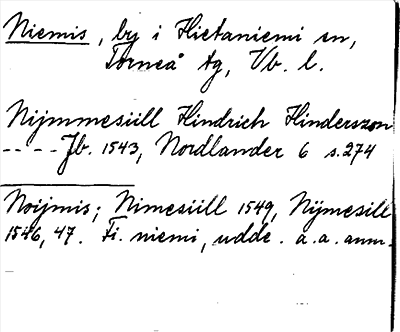 Niemis, by i Hietaniemi sn,
Torneå tg, Vb. l.
Nijmmesiull Hindrich Hinderszon
---- Jb. 1543, Nordlander 6 s. 274
Noijmis; Nimesiill 1549, Nÿmesill
1546, 47. Fi. niemi, udde. a.a. anm.